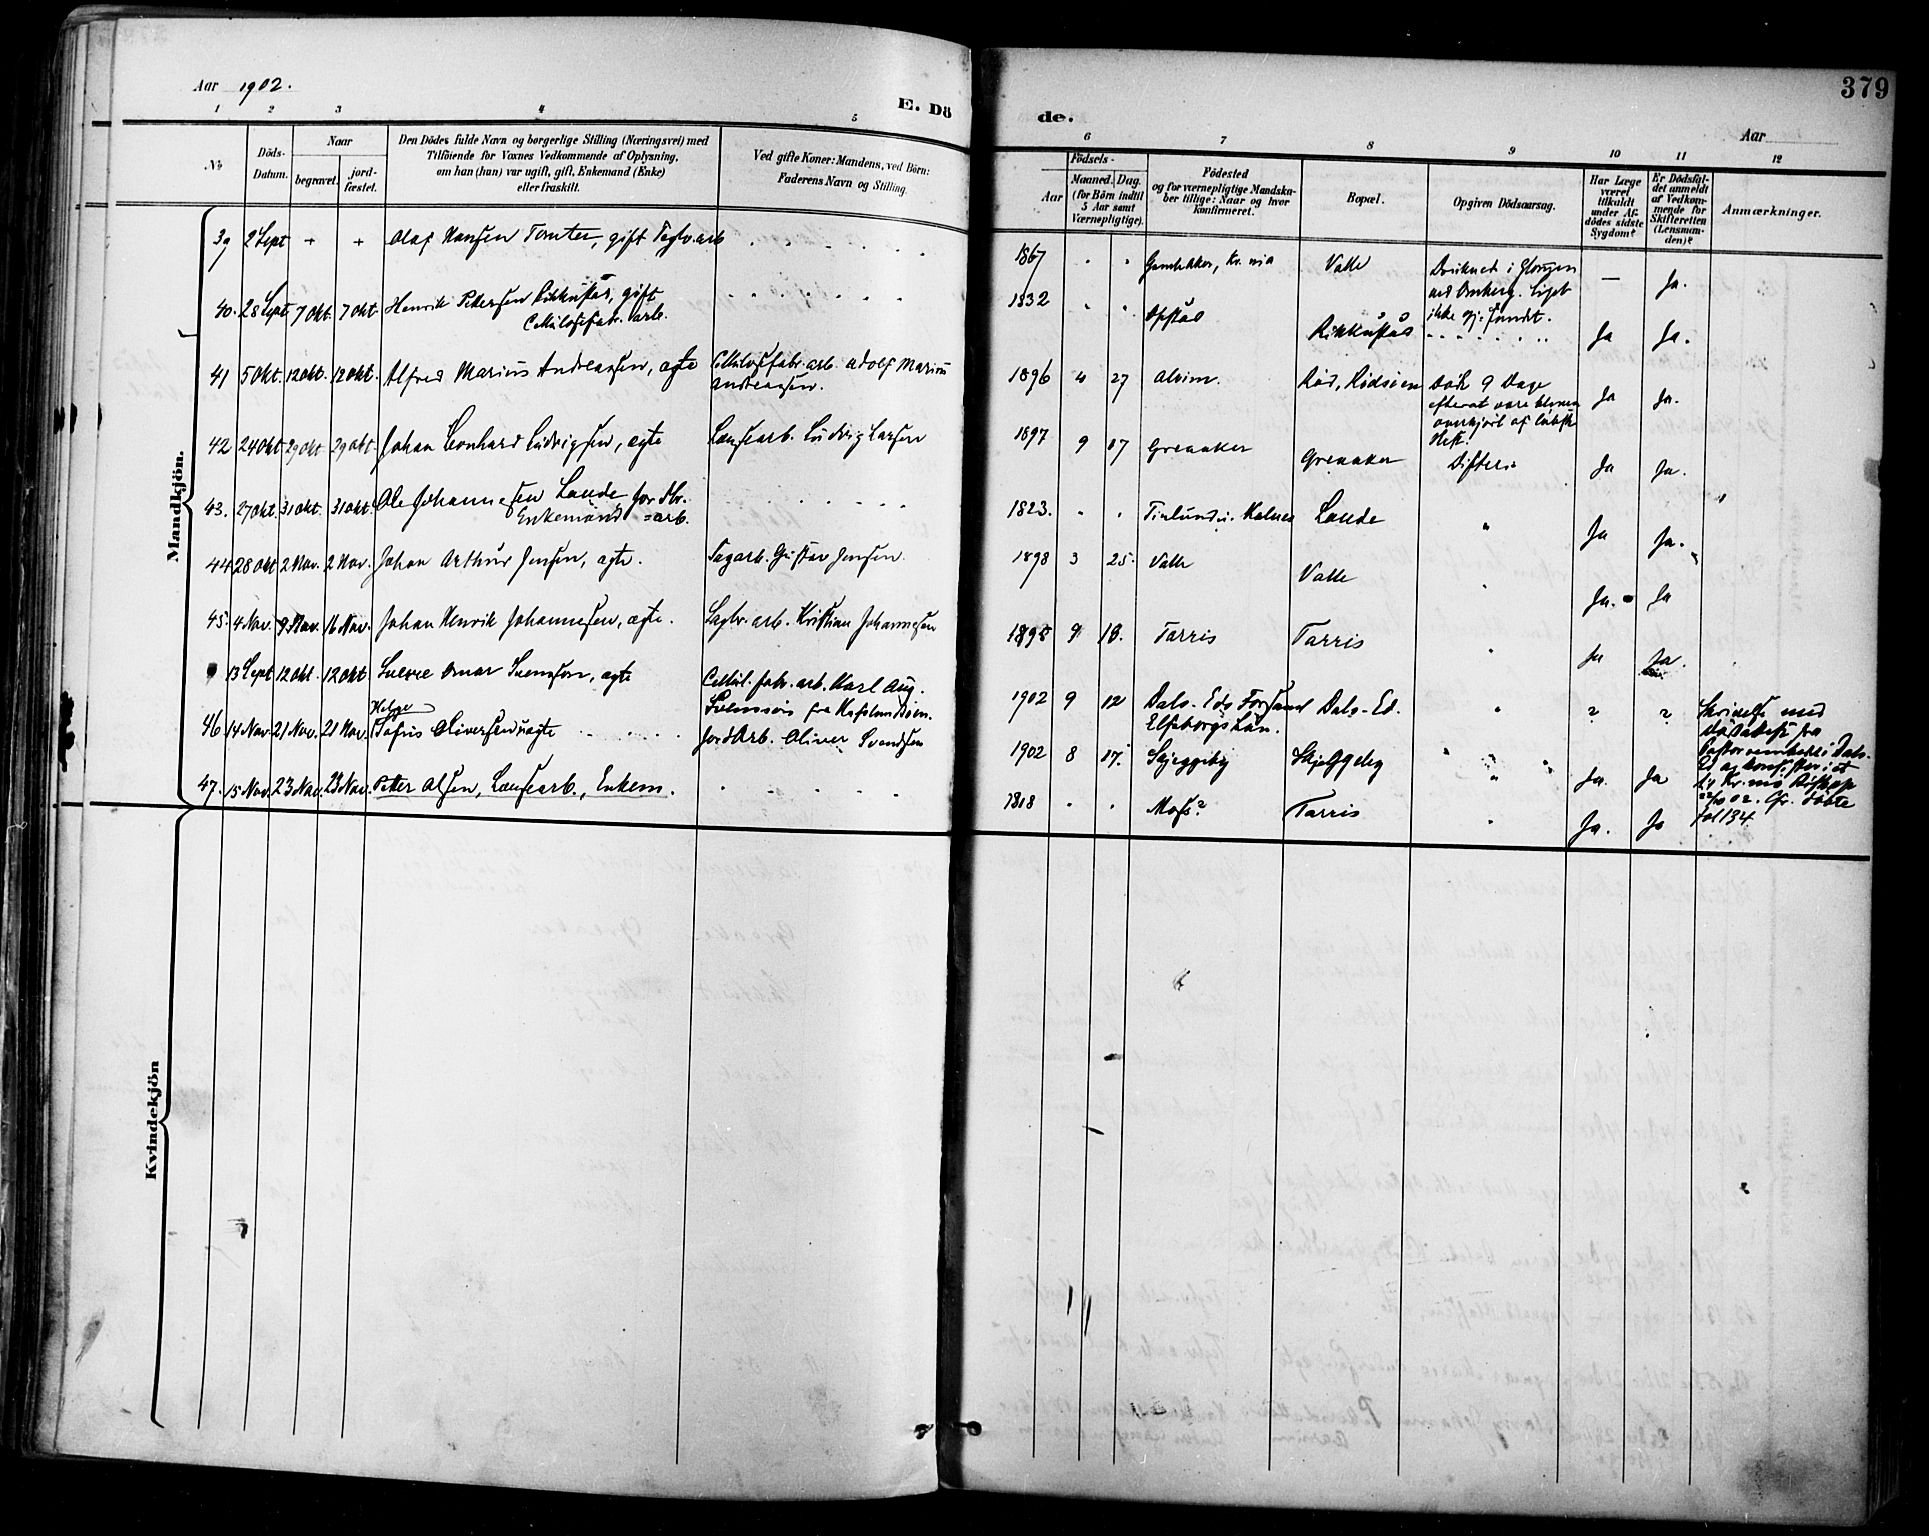 Aar 1902.
E. Dö
1 2 3 4 5
No
Döds-Datum.
Naar
begravet.
jord-fæstet.
Den Dödes fulde Navn og borgerlige Stilling (Næringsvei) med
Tilföiende for Voxnes Vedkommende af Oplysning,
om han (hun) var ugift, gift, Enkemand (Enke)
eller fraskilt.
Ved gifte Koner: Mandens, ved Börn:
Faderens Navn og Stilling.
Mandkjön.
39 2 Sept + + Olaf Hansen Tomter, gift Teglv.arb
40. 28 Sept 7 Okt. 7 Okt. Henrik Pettersen, gift
Cellulosefabr. arb.
41 5 Okt. 12 Okt. 12 Okt. Alfred Marius Andreassen, ægte Cellulosefabr. arb. Adolf Marius
Andreassen.
42 24 Okt 29 Okt 29 Okt. Johan Leonhard Ludvigsen, ægte Lænsearb. Ludvig Larsen
43. 27 Okt. 31 Okt. 31 Okt. Ole Johannessen Lande Jordbr.
Enkemand =arb.
44 28 Okt 2 Nov. 2 Nov. Johan Arthur Jensen, ægte. Sagarb. Gustav Jensen.
45. 4 Nov. 9 Nov. 16 Nov. Johan Henrik Johannesen, ægte. Sagbr. arb. Kristian Johannesen
13 Sept 12 Okt. 12 Okt Omar Svensson, ægte Cellul. fabr. arb. Karl Aug.
Svensson fra Hafslundsöen.
Helge
46 14 Nov. 21 Nov. 21 Nov. Tofris Oliversen uægte Jordarb. Oliver Svendsen
47. 15 Nov. 23 Nov. 23 Nov. Petter Olsen, Lænsearb., Enkem.
Kvindekjön
de.
379
Aar
6 7 8 9 10 11 12
Födsels-
Aar
Maaned. Dag.
(for Börn indtil
5 Aar samt
Værnepligtige).
Födested
og for værnepligtige Mandska-
ber tillige: Naar og hvor
konfirmeret.
Bopæl.
Opgiven Dödsaarsag.
Har Læge
været
tilkaldt
under Af-
dödes sidste
Sygdom?
Er Dödsfal-
det anmeldt
af Vedkom-
mende for
Skifteretten
(Lensman-
den)?
Anmærkninger.
1867 " " Gamle Aker, Kr.nia Valle Druknet i Glommen
ved Liget
ikke gj:fundet. — Ja.
1832 " " Opstad Ja Ja.
1896 4 27 Alvim. Rød, Rødsöen Död 9 Dage
efterat være bleven
overkjört af löbsk
Hest. Ja Ja.
1897 9 17 Greaaker Greaaker Difteri Ja Ja.
1823. " " Kalnes Lande " Ja Ja.
1898 3 25. Valle Valle " Ja. Ja
1895 9 18. Tarris Tarris " Ja Ja.
1902 9 12 Dals-Eds Forsamml
Elfsborgs Län. Dals-Ed. " ? ? Skrivelse med
fra
i Dals-
Ed
Kr.nia Biskop
22/10 02. Cfr. döbte
fol 134.
1902 8 17. Skjeggeby Skjeggeby " Ja. Ja
1818 " " Moss? Tarris " Ja. Ja